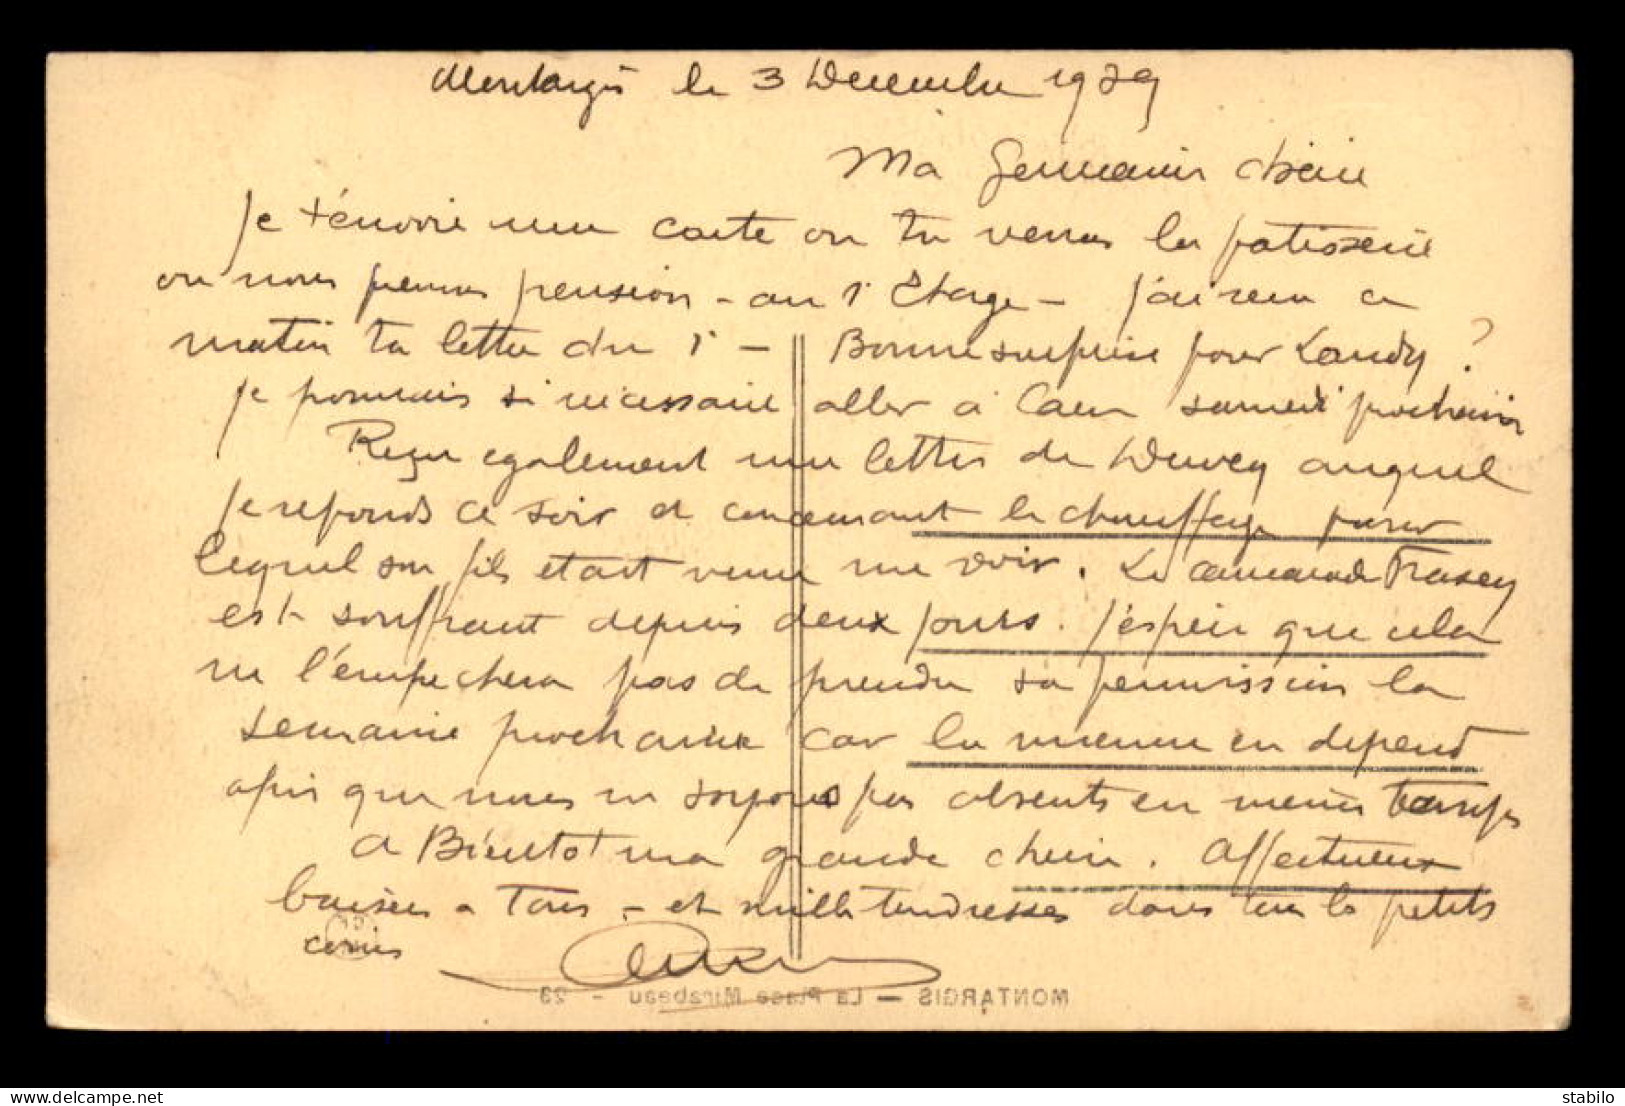 Montargis le 3 Decembre 1939
Ma Germaine chérie
Je t'envoie une carte ou tu verras la patisserie
ou nous prenons pension - au 1r Etage - J'ai recu ce
matin ta lettre du 1r - Bonne surprise pour Landy ?
je pourrais si nécessaire aller à Caen samedi prochain
Reçu egalement une lettre de Duvey auquel
je reponds ce soir et concernant le chauffage pour
lequel son fils etait venu me voir. Le camarade Frasey
est souffrant depuis deux jours. J'espère que cela
ne l'empechera pas de prendre sa permission la
semaine prochaine car la mienne en depend
afin que nous ne soyons pas absents en même temps
a Bientot ma grande cherie. Affectueux
baisers a Tous - et mille tendresses dans tous les petits
coins
MONTARGIS — La Place Mirabeau - 23
delcampe.net
stabilo